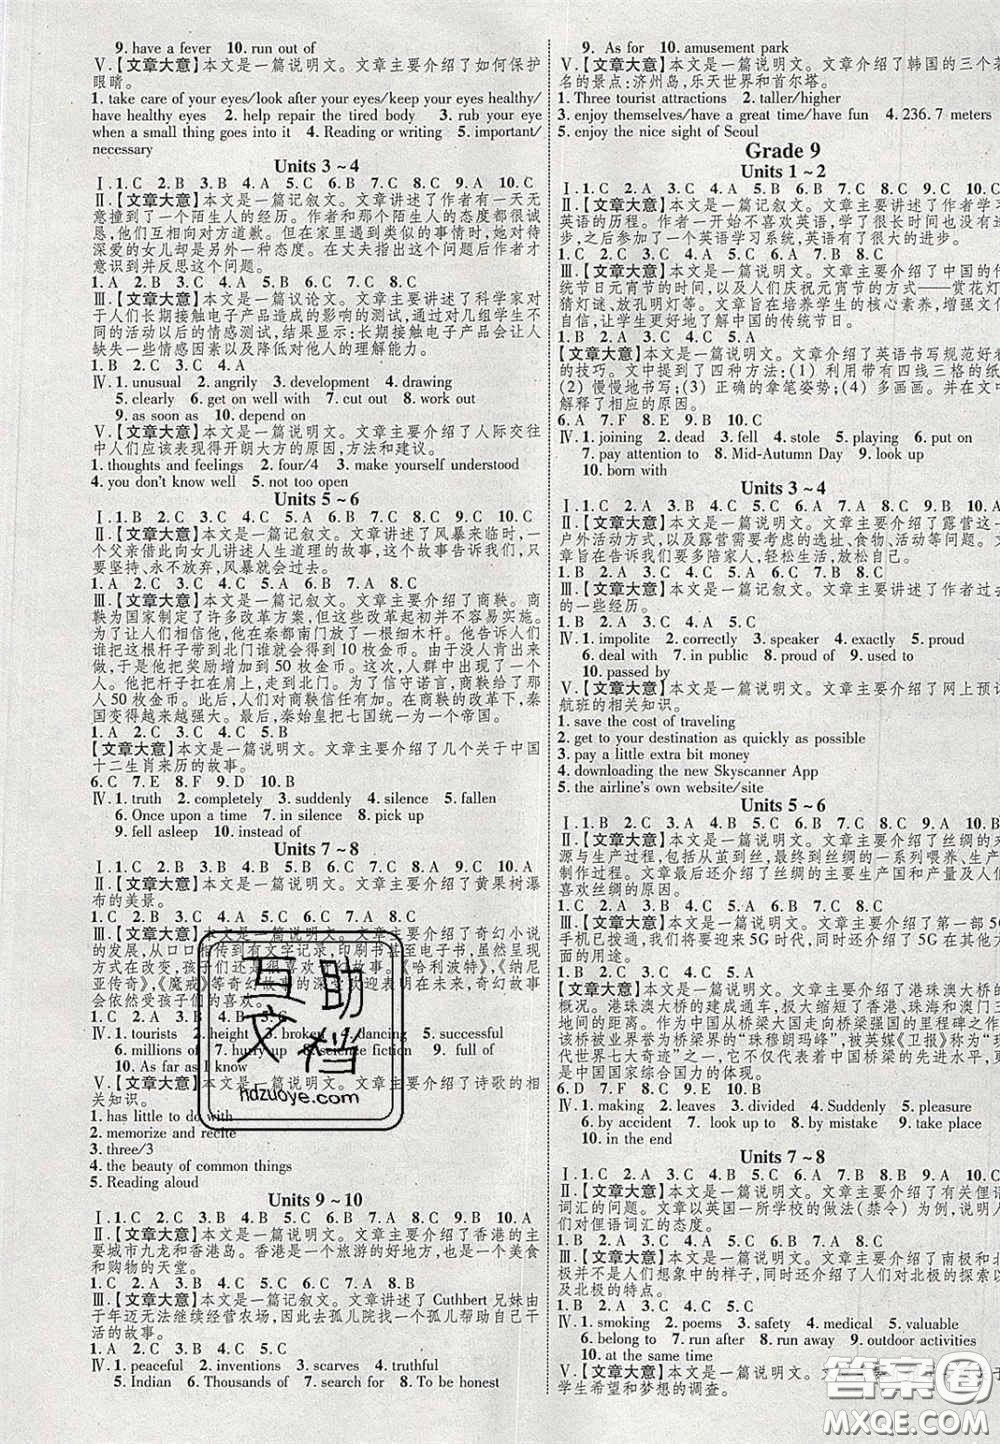 9. have a fever 10. run out of
Ⅴ.【文章大意】本文是一篇说明文。文章主要介绍了如何保护
眼睛。
1. take care of your eyes/look after your eyes/keep your eyes healthy/
have healthy eyes 2. help repair the tired body 3. rub your eye
when a small thing goes into it 4. Reading or writing 5. important/
necessary
Units 3~4
Ⅰ. 1. C 2. B 3. B 4. A 5. C 6. B 7. C 8. C 9. A 10. C
Ⅱ.【文章大意】本文是一篇记叙文。文章讲述了作者有一天无
意撞到了一个陌生人的经历。作者和陌生人的态度都很诚
恳,他们互相向对方道歉。但在家里遇到类似的事情时,她对待
深爱的女儿却是另外一种态度。在丈夫指出这个问题后作者才
意识到并反思这个问题。
1. A 2. B 3. B 4. A 5. C 6. B 7. C 8. A
Ⅲ.【文章大意】本文是一篇议论文。文章主要讲述了科学家对
于人们长期接触电子产品造成的影响的测试,通过对几组学生不
同的活动以后的情感测试,结果显示:长期接触电子产品会让人
缺失一些情感因素以及降低对他人的理解能力。
1. B 2. A 3. B 4. C
Ⅳ. 1. unusual 2. angrily 3. development 4. drawing
5. clearly 6. get on well with 7. cut out 8. work out
9. as soon as 10. depend on
Ⅴ.【文章大意】本文是一篇说明文。文章介绍了人际交往
中人们应该表现得开朗大方的原因,方法和建议。
1. thoughts and feelings 2. four/4 3. make yourself understood
4. you don't know well 5. not too open
Units 5~6
Ⅰ. 1. B 2. C 3. C 4. A 5. B 6. C 7. B 8. C 9. A 10. C
Ⅱ.【文章大意】本文是一篇记叙文。文章讲述了风暴来临时,一
个父亲借此向女儿讲述人生道理的故事,这个故事告诉我们,只
要坚持、永不放弃,风暴就会过去。
1. A 2. C 3. A 4. B 5. A 6. B 7. C 8. C
Ⅲ.【文章大意】本文是一篇记叙文。文章主要介绍了商鞅。商
鞅为国家制定了许多改革方案,但没有人相信并愿意实施。
为了让人们相信他,他在秦都南门放了一根细木杆。他告诉人们
谁把杆子带到北门谁就会得到 10 枚金币。由于没人肯出来
做,他把奖励增加到 50 枚金币。这次,人群中出现了一个
人。他把杆子扛在肩上,走到北门。为了信守诺言,商鞅给了
他 50 枚金币。人们对商鞅信任有加。在商鞅的改革下,秦
国变得越来越强大。最后,秦始皇把七国统一为一个帝国。
1. A 2. C 3. A 4. B 5. C
【文章大意】本文是一篇说明文。文章主要介绍了几个关于中国
十二生肖来历的故事。
6. C 7. E 8. F 9. D 10. B
Ⅳ. 1. truth 2. completely 3. suddenly 4. silence 5. fallen
6. Once upon a time 7. in silence 8. pick up
9. fell asleep 10. instead of
Units 7~8
Ⅰ. 1. C 2. B 3. B 4. B 5. B 6. C 7. A 8. C 9. C 10. A
Ⅱ.【文章大意】本文是一篇说明文。文章主要介绍了黄果树瀑
布的美景。
1. C 2. C 3. B 4. C 5. A 6. B 7. A 8. C
Ⅲ.【文章大意】本文是一篇说明文。文章主要介绍了奇幻小说
的发展,从口口相传到有文字记录,印刷书甚至电子书,虽然呈现
方式在改变,孩子们还是很喜欢奇幻故事。《哈利波特》,《纳尼
亚传奇》,《魔戒》等奇幻故事的深受欢迎表明在未来,奇幻故事
会依然受孩子们的喜欢。
1. A 2. C 3. A 4. B 5. C
Ⅳ. 1. tourists 2. height 3. broken 4. dancing 5. successful
6. millions of 7. hurry up 8. science fiction 9. full of
10. As far as I know
Ⅴ.【文章大意】本文是一篇说明文。文章主要介绍了诗歌的相
关知识。
1. has little to do with
2. memorize and recite
3. three/3
4. the beauty of common things
5. Reading aloud
Units 9~10
Ⅰ. 1. C 2. C 3. B 4. B 5. C 6. C 7. B 8. B 9. C 10. A
Ⅱ.【文章大意】本文是一篇说明文。文章主要介绍了香港的主
要城市九龙和香港岛。香港是一个旅游的好地方,也是一个美食
和购物的天堂。
1. C 2. A 3. C 4. B 5. A 6. C 7. A 8. B
Ⅲ.【文章大意】本文是一篇记叙文。文章讲述了 Cuthbert 兄妹由
于年迈无法继续经营农场,因此去孤儿院找一个孤儿帮助自己干
活的故事。
1. C 2. A 3. C 4. A 5. B
Ⅳ. 1. peaceful 2. inventions 3. scarves 4. truthful
5. Indian 6. Thousands of 7. search for 8. To be honest
9. As for 10. amusement park
Ⅴ.【文章大意】本文是一篇说明文。文章介绍了韩国的三个著
名的景点:济州岛,乐天世界和首尔塔。
1. Three tourist attractions 2. taller/higher
3. enjoy themselves/have a great time/have fun 4. 236. 7 meters
5. enjoy the nice sight of Seoul
Grade 9
Units 1~2
Ⅰ. 1. A 2. C 3. A 4. C 5. A 6. B 7. B 8. A 9. C 10. C
Ⅱ.【文章大意】本文是一篇记叙文。文章主要讲述了作者学习
英语的历程。作者一开始不喜欢英语,学了很长时间也没有进
步,之后参加了一个英语学习系统,英语有了很大的进步。
1. C 2. C 3. C 4. B 5. B 6. A 7. C 8. A
Ⅲ.【文章大意】本文是一篇说明文。文章主要介绍了中国的传
统节日元宵节的时间,以及人们庆祝元宵节的方式——赏花灯、
猜灯谜、放孔明灯等。文章旨在培养学生的核心素养,增强文化
自信,让学生更好地了解中国的传统节日。
1. B 2. B 3. A 4. B 5. A
【文章大意】本文是一篇说明文。文章介绍了英语书写规范好看
的技巧。文中提到了四种方法:(1) 利用带有四线三格的纸;
(2) 慢慢地书写;(3) 正确的拿笔姿势;(4) 多画画。并在文中
解释了相应的原因。
6. A 7. F 8. B 9. D 10. C
Ⅳ. 1. joining 2. dead 3. fell 4. stole 5. playing 6. put on
7. pay attention to 8. Mid-Autumn Day 9. look around
10. born with
Units 3~4
Ⅰ. 1. C 2. A 3. B 4. C 5. A 6. A 7. C 8. A 9. B 10. A
Ⅱ.【文章大意】本文是一篇说明文。文章主要介绍了露营这一
户外活动方式,以及露营需要考虑的选址、食物、活动等问题。文
章旨在告诉我们要多陪家人,轻松生活,放松自己。
1. B 2. A 3. C 4. B 5. C 6. A 7. A 8. C
Ⅲ.【文章大意】本文是一篇记叙文。文章主要讲述了作者过去
的一些经历。
1. B 2. C 3. C 4. A 5. A
Ⅳ. 1. impolite 2. correctly 3. speaker 4. exactly 5. proud
6. deal with 7. in public 8. proud of 9. used to
10. passed by
Ⅴ.【文章大意】本文是一篇说明文。文章主要介绍了网上预订
航班的相关知识。
1. save the cost of traveling
2. get to your destination as quickly as possible
3. pay a little extra bit money
4. downloading the new Skyscanner App
5. the airline's own website/site
Units 5~6
Ⅰ. 1. C 2. A 3. A 4. C 5. A 6. C 7. B 8. A 9. B 10. C
Ⅱ.【文章大意】本文是一篇说明文。文章主要介绍了丝绸的来
源与生产过程,包括从茧到丝,最终到丝绸的一系列喂养、生产、
制作过程。文章最后还介绍了丝绸的主要生产国和产量及人们
喜欢丝绸的原因。
Ⅲ.【文章大意】本文是一篇说明文。文章主要介绍了第一部 5G
手机已拨通,我们将要迎来 5G 时代,同时还介绍了 5G 在其他方
面的用途。
【文章大意】本文是一篇说明文。文章主要介绍了港珠澳大桥的
概况。港珠澳大桥的建成通车,极大缩短了香港、珠海和澳门三
地间的距离。作为中国从桥梁大国走向桥梁强国的里程碑之作,
该桥被业界誉为桥梁界的“珠穆朗玛峰”,被英媒《卫报》称为“现
代世界七大奇迹”之一,它不仅代表了中国桥梁的先进水平,更
是中国国家综合国力的体现。
6. D 7. F 8. C 9. E 10. B
Ⅳ. 1. making 2. leaves 3. divided 4. Suddenly 5. pleasure
6. by accident 7. look up to 8. by mistake 9. take place
10. in the end
Units 7~8
Ⅱ.【文章大意】本文是一篇说明文。文章主要介绍了有关俚语
词汇的讨论。文章以英国一所学校的做法(禁令)为例,说明人
们对俚语词汇的态度。
Ⅲ.【文章大意】本文是一篇说明文。文章主要介绍了南极和北
极并不是人们想象中的样子,同时还介绍了人们对北极的探索以
及北极的特点。
1. B 2. C 3. A 4. C 5. B
Ⅳ. 1. smoking 2. poems 3. safety 4. medical 5. voice
6. belong to 7. prefer to 8. run away 9. outdoor activities
10. at the same time
Ⅴ.【文章大意】本文是一篇说明文。文章主要介绍了关于
学生希望和梦想的调查。
互助
文档
hdzuoye.com
答案圈
MXQE.COM